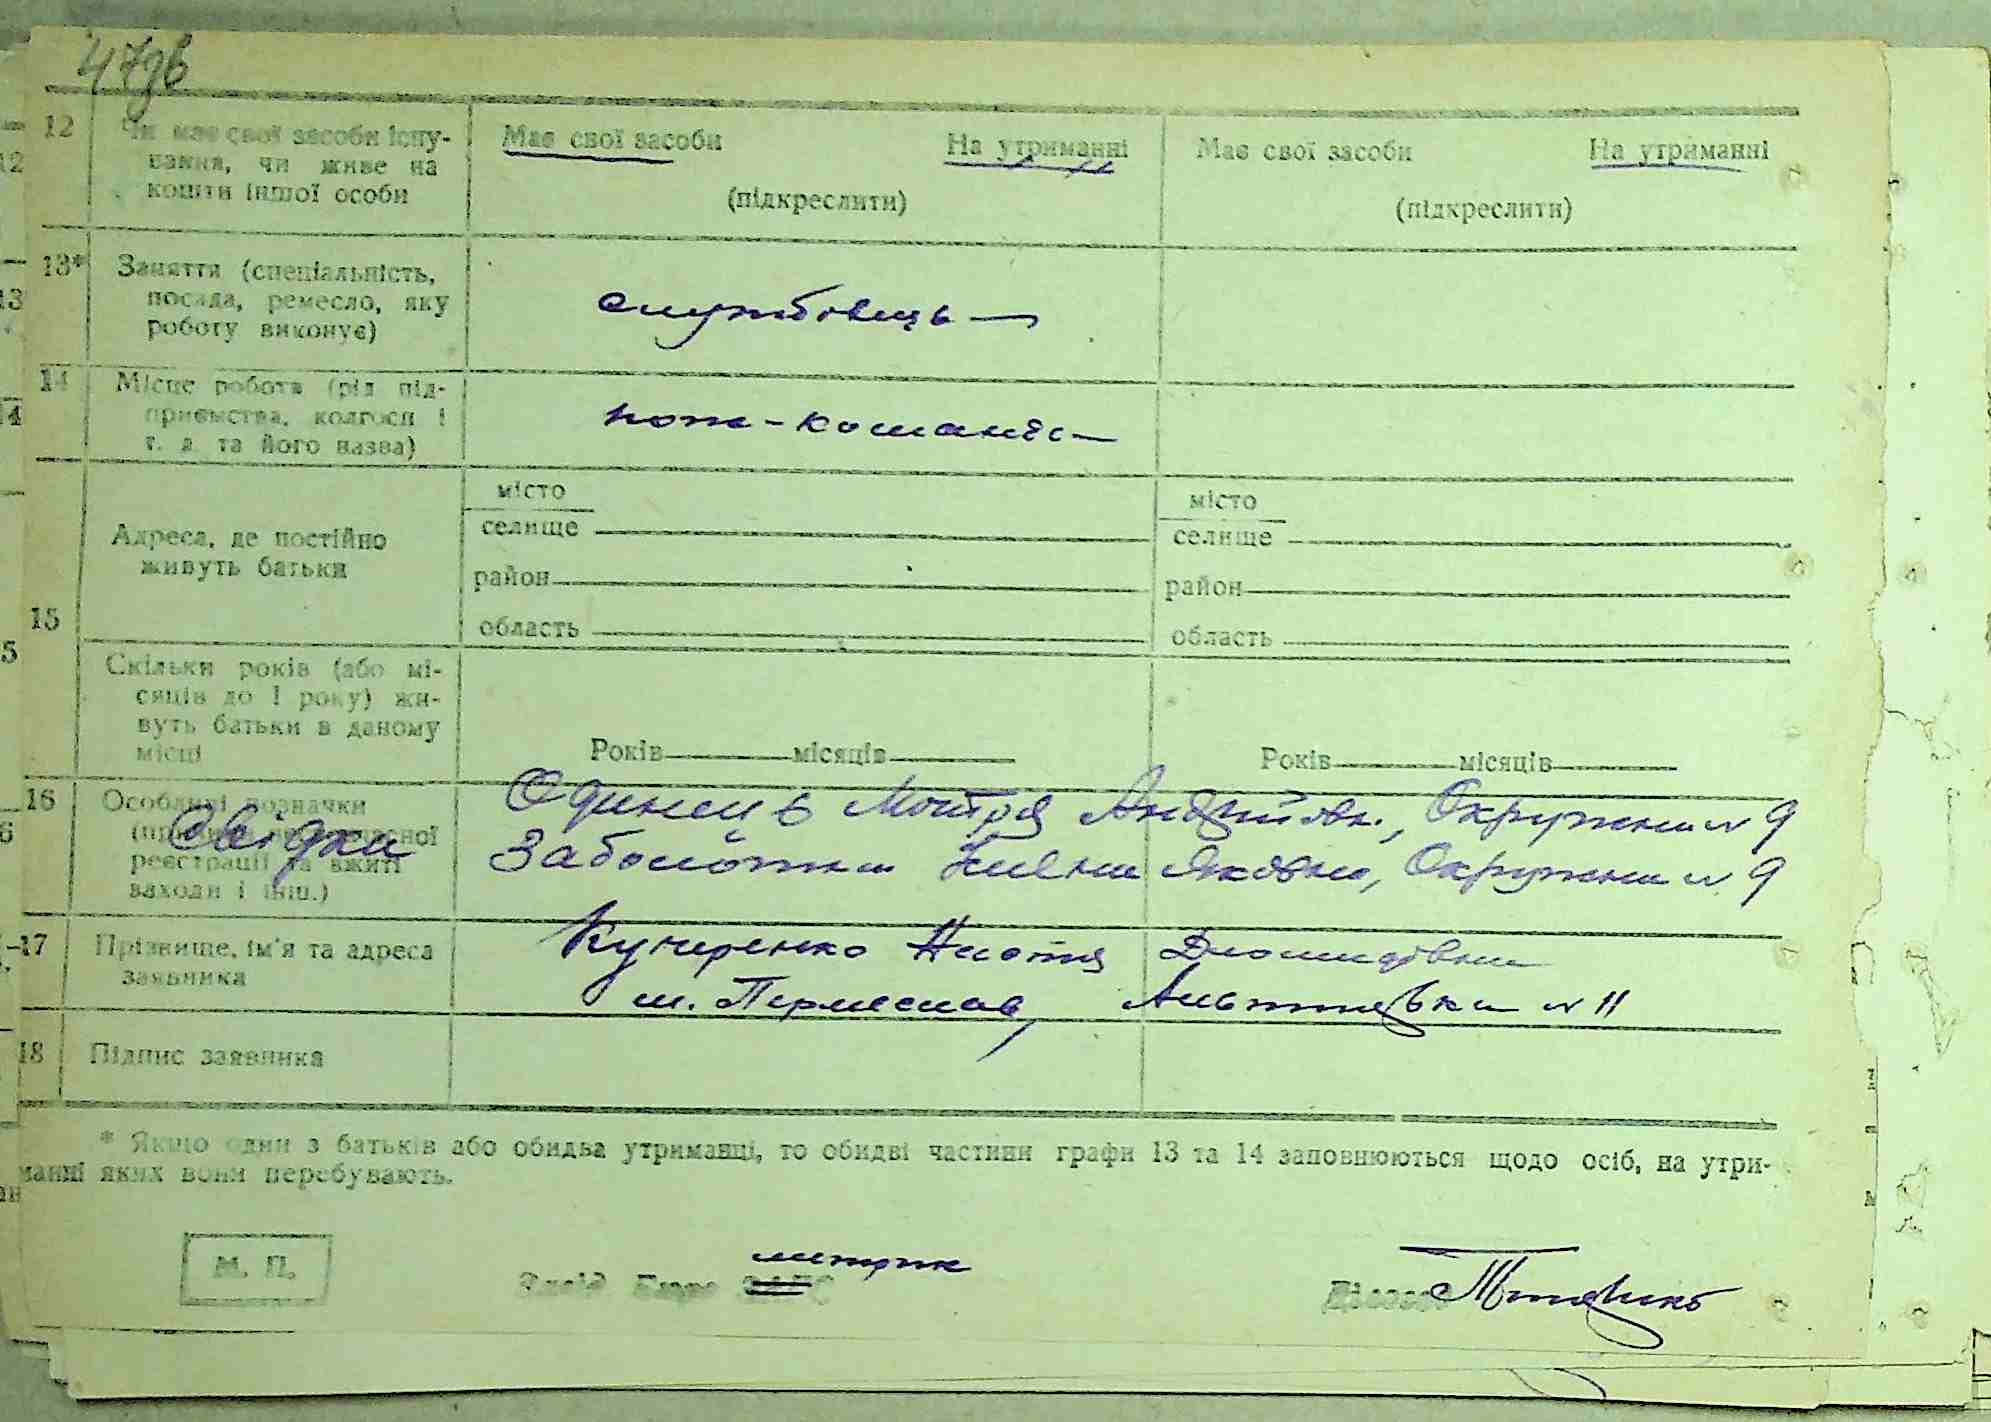 47зв
12 Чи має свої засоби існу-
вання, чи живе на
кошти іншої особи
Має свої засоби На утриманні
(підкреслити)
Має свої засоби На утриманні
(підкреслити)
13* Заняття (спеціальність,
посада, ремесло, яку
роботу виконує)
службовець
14 Місце роботи (рід під-
приємства, колгосп і
т. д. та його назва)
пож-команда
15
Адреса, де постійно
живуть батьки
місто
селище
район
область
місто
селище
район
область
Скільки років (або мі-
сяців до 1 року) жи-
вуть батьки в даному
місці
Років місяців
Років місяців
16 Особливі позначки
(причини несвоєчасної
реєстрації та вжиті
заходи і інш.)
Свідки
Одинець Мотря Андрійівн., Окружна № 9
Заболотна Яківна, Окружна № 9
17 Прізвище, ім'я та адреса
заявника
Кучеренко Настя Диомидівна
м. Переяслав, Альтицька № 11
18 Підпис заявника
* Якщо один з батьків або обидва утриманці, то обидві частини графи 13 та 14 заповнюються щодо осіб, на утри-
манні яких вони перебувають.
М. П.
Бюро ЗАГС
метрик